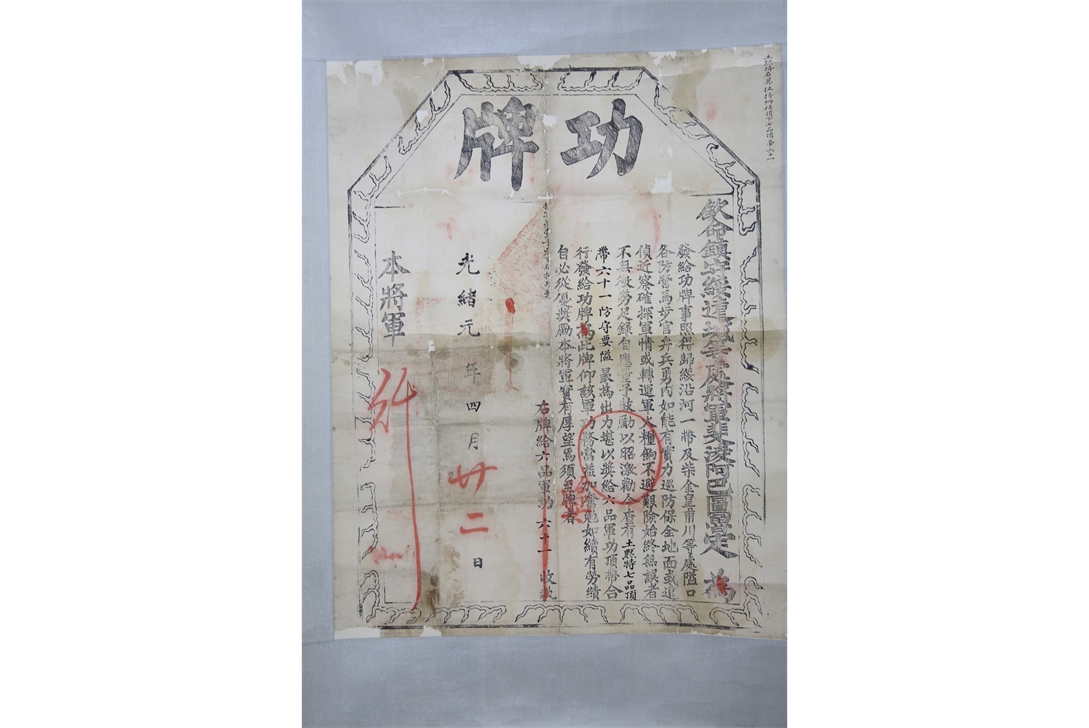 功牌
欽命鎮守綏遠城等處將軍斐凌阿巴圖魯定 為
發給功牌事照得歸綏沿河一帶及柴金皇甫川等處隘口
各防營馬步官弁兵勇內如能有實力巡防保全地面或遠
偵近察確探軍情或轉運軍火糧餉不避艱險始終無誤者
不無微勞足錄自應 予鼓勵以昭激勸今查有土默特七品頂
帶六十一防守要隘最為出力堪以獎給六品軍功頂帶合
行發給功牌為此牌仰該軍功 當益加奮勉如續有勞績
自必從優獎勵本將軍實有厚望焉須至牌者
右牌給六品軍功 六十一 收執
光緒元年四月廿二日
本將軍